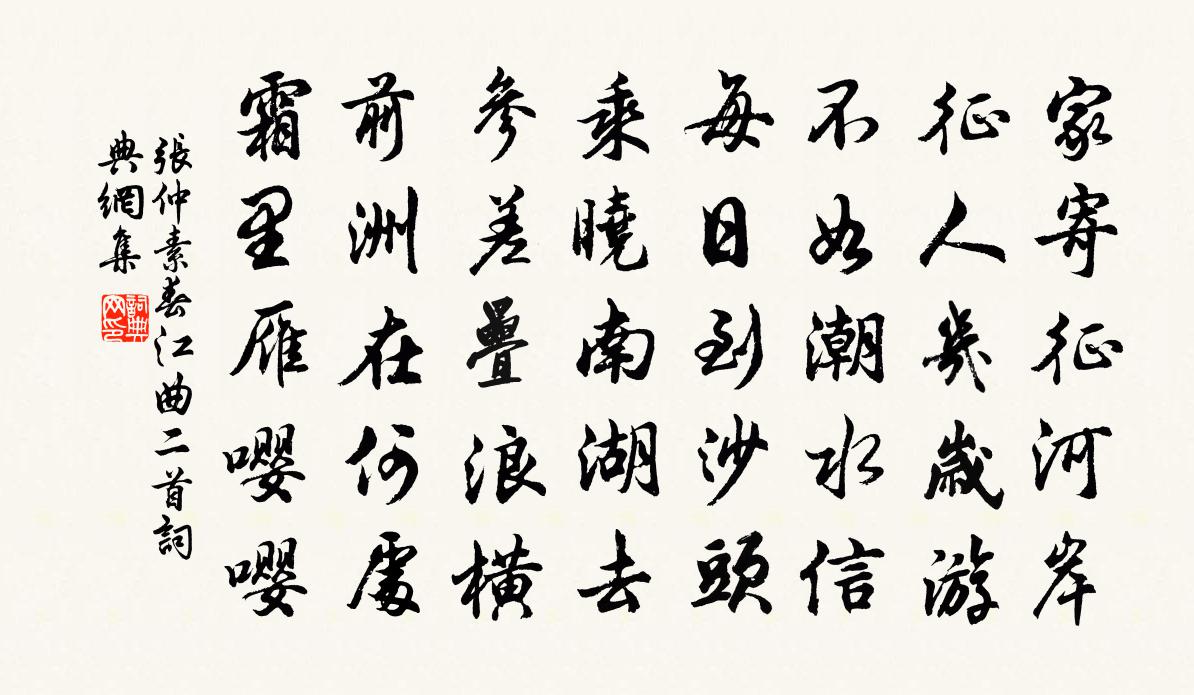 家寄征河岸
征人幾歲游
不如潮水信
每日到沙頭
乘曉南湖去
參差疊浪橫
前洲在何處
霜里雁嚶嚶
張仲素春江曲二首詞
典網集
詞典
网印